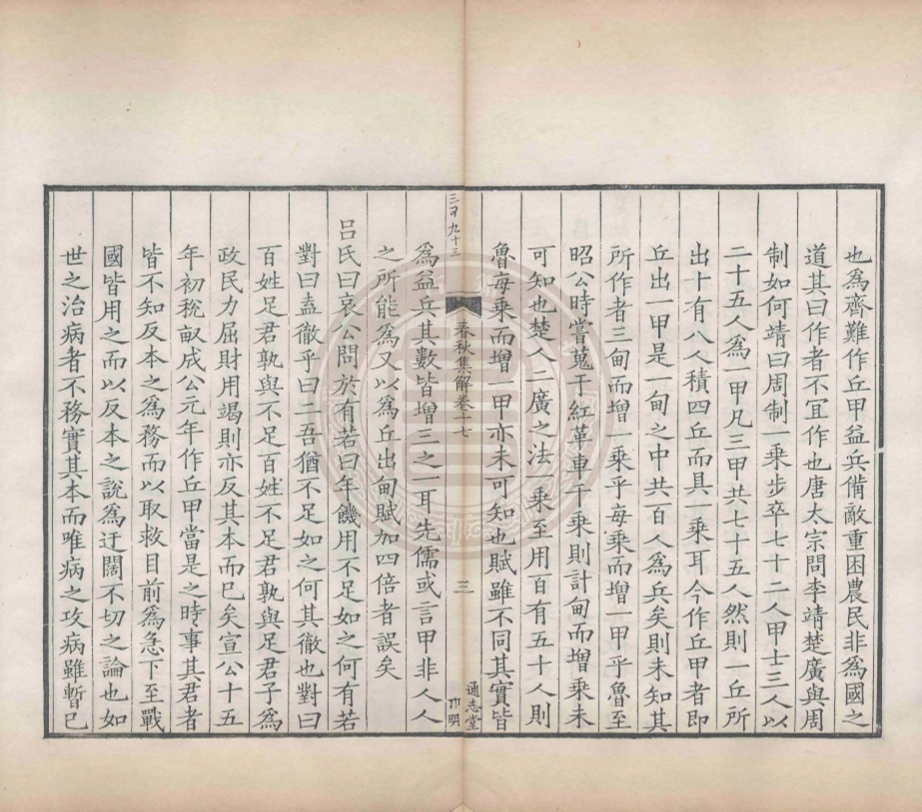 也為齊難作丘甲益兵備敵重困農民非為國之
道其曰作者不冝作也唐太宗問李靖楚廣與周
制如何靖曰周制一乗步卒七十二人甲士三人以
二十五人為一甲凡三甲共七十五人然則一丘所
出十有八人積四丘而具一乗耳今作丘甲者即
丘出一甲是一甸之中共百人為兵矣則未知其
所作者三甸而增一乗乎每乗而增一甲乎魯至
昭公時嘗蒐于紅革車千乗則計甸而增乗未
可知也楚人二廣之法一乗至用百有五十人則
魯每乗而增一甲亦未可知也賦雖不同其實皆
春秋集解卷十七
三
通志堂
為益兵其數皆增三之一耳先儒或言甲非人人
之所能為又以為丘出甸賦加四倍者誤矣
呂氏曰哀公問於有若曰年饑用不足如之何有若
對曰盍徹乎曰二吾猶不足如之何其徹也對曰
百姓足君孰與不足百姓不足君孰與足君子為
政民力屈財用竭則亦反其本而已矣宣公十五
年初稅畝成公元年作丘甲當是之時事其君者
皆不知反本之為務而以取救目前為急下至戰
國皆用之而以反本之說為迂闊不切之論也如
世之治病者不務實其本而唯病之攻病雖暫已